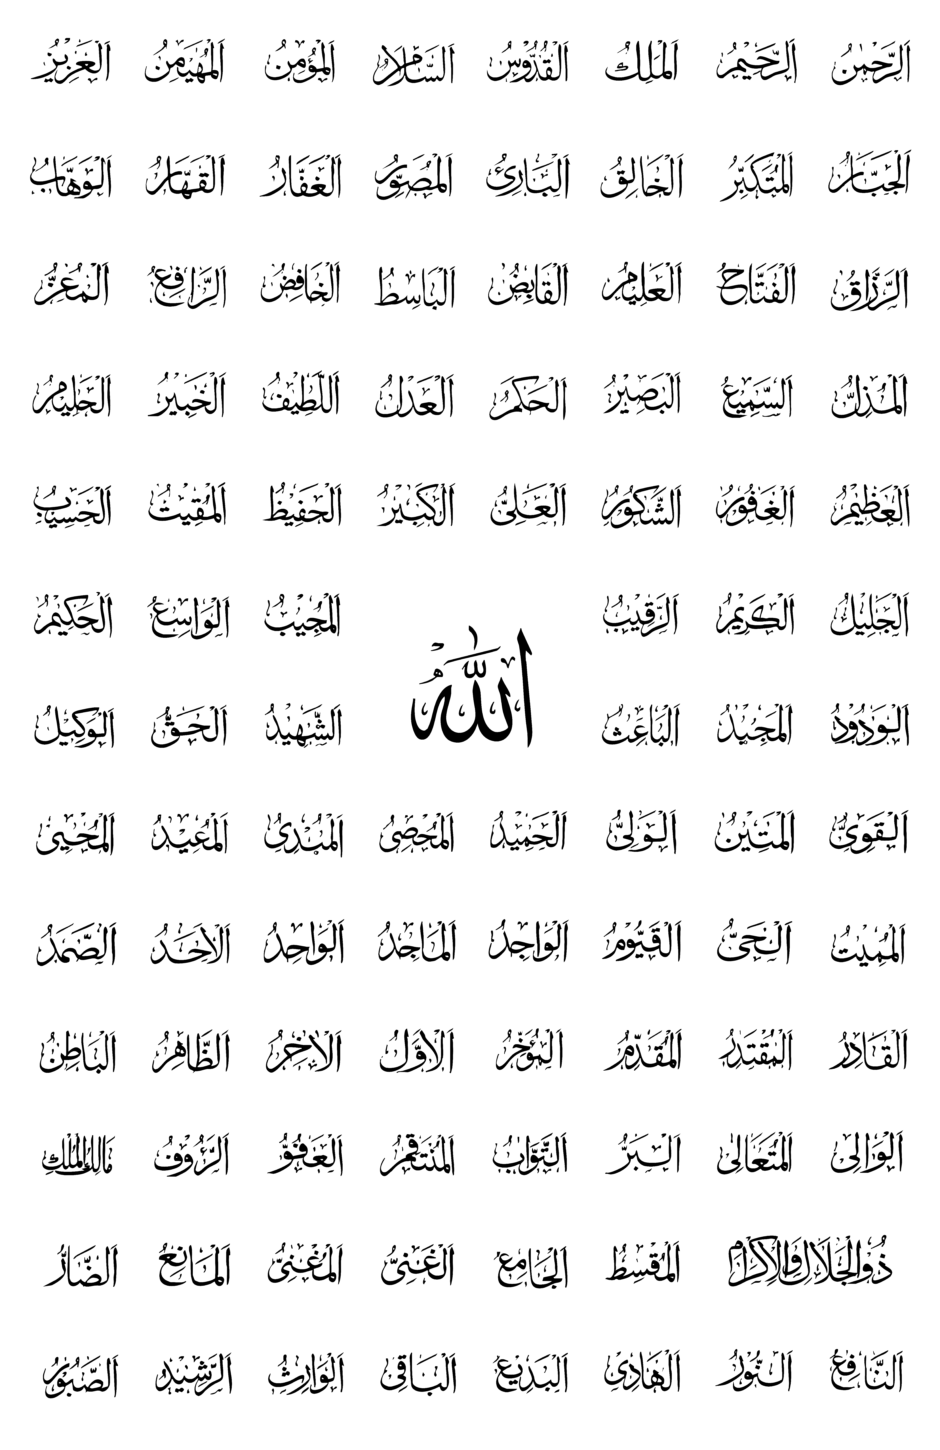 الرَّحْمٰنُ الرَّحِيْمُ الْمَلِكُ الْقُدُّوْسُ السَّلَامُ الْمُؤْمِنُ الْمُهَيْمِنُ الْعَزِيْزُ
الْجَبَّارُ الْمُتَكَبِّرُ الْخَالِقُ الْبَارِئُ الْمُصَوِّرُ الْغَفَّارُ الْقَهَّارُ الْوَهَّابُ
الرَّزَّاقُ الْفَتَّاحُ الْعَلِيْمُ الْقَابِضُ الْبَاسِطُ الْخَافِضُ الرَّافِعُ الْمُعِزُّ
الْمُذِلُّ السَّمِيْعُ الْبَصِيْرُ الْحَكَمُ الْعَدْلُ اللَّطِيْفُ الْخَبِيْرُ الْحَلِيْمُ
الْعَظِيْمُ الْغَفُوْرُ الشَّكُوْرُ الْعَلِيُّ الْكَبِيْرُ الْحَفِيْظُ الْمُقِيْتُ الْحَسِيْبُ
الْجَلِيْلُ الْكَرِيْمُ الرَّقِيْبُ الْمُجِيْبُ الْوَاسِعُ الْحَكِيْمُ
اللّٰهُ
الْوَدُوْدُ الْمَجِيْدُ الْبَاعِثُ الشَّهِيْدُ الْحَقُّ الْوَكِيْلُ
الْقَوِيُّ الْمَتِيْنُ الْوَلِيُّ الْحَمِيْدُ الْمُحْصِي الْمُبْدِئُ الْمُعِيْدُ الْمُحْيِي
الْمُمِيْتُ الْحَيُّ الْقَيُّوْمُ الْوَاجِدُ الْمَاجِدُ الْوَاحِدُ الْاَحَدُ الصَّمَدُ
الْقَادِرُ الْمُقْتَدِرُ الْمُقَدِّمُ الْمُؤَخِّرُ الْاَوَّلُ الْاٰخِرُ الظَّاهِرُ الْبَاطِنُ
الْوَالِي الْمُتَعَالِي الْبَرُّ التَّوَّابُ الْمُنْتَقِمُ الْعَفُوُّ الرَّؤُوْفُ مَالِكُ الْمُلْكِ
ذُوالْجَلَالِ وَالْاِكْرَامِ الْمُقْسِطُ الْجَامِعُ الْغَنِيُّ الْمُغْنِيُّ الْمَانِعُ الضَّارُّ
النَّافِعُ النُّوْرُ الْهَادِيُ الْبَدِيْعُ الْبَاقِي الْوَارِثُ الرَّشِيْدُ الصَّبُوْرُ